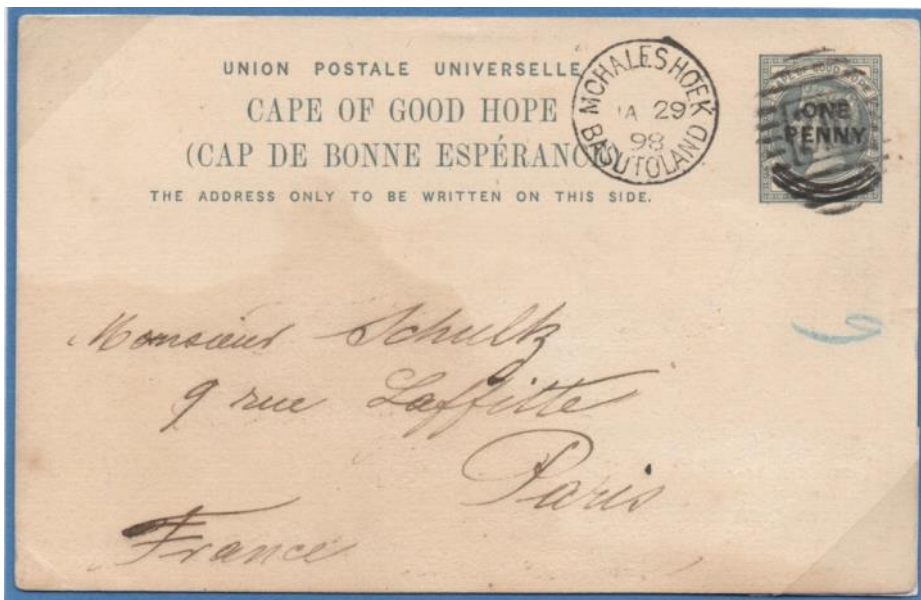 UNION POSTALE UNIVERSELLE
CAPE OF GOOD HOPE
(CAP DE BONNE ESPÉRANC
THE ADDRESS ONLY TO BE WRITTEN ON THIS SIDE.
MOHALESHOEK
JA 29
98
BASUTOLAND
CAPE OF GOOD HOPE
ONE
PENNY
Monsieur Schultz
9 rue Laffitte
Paris
France